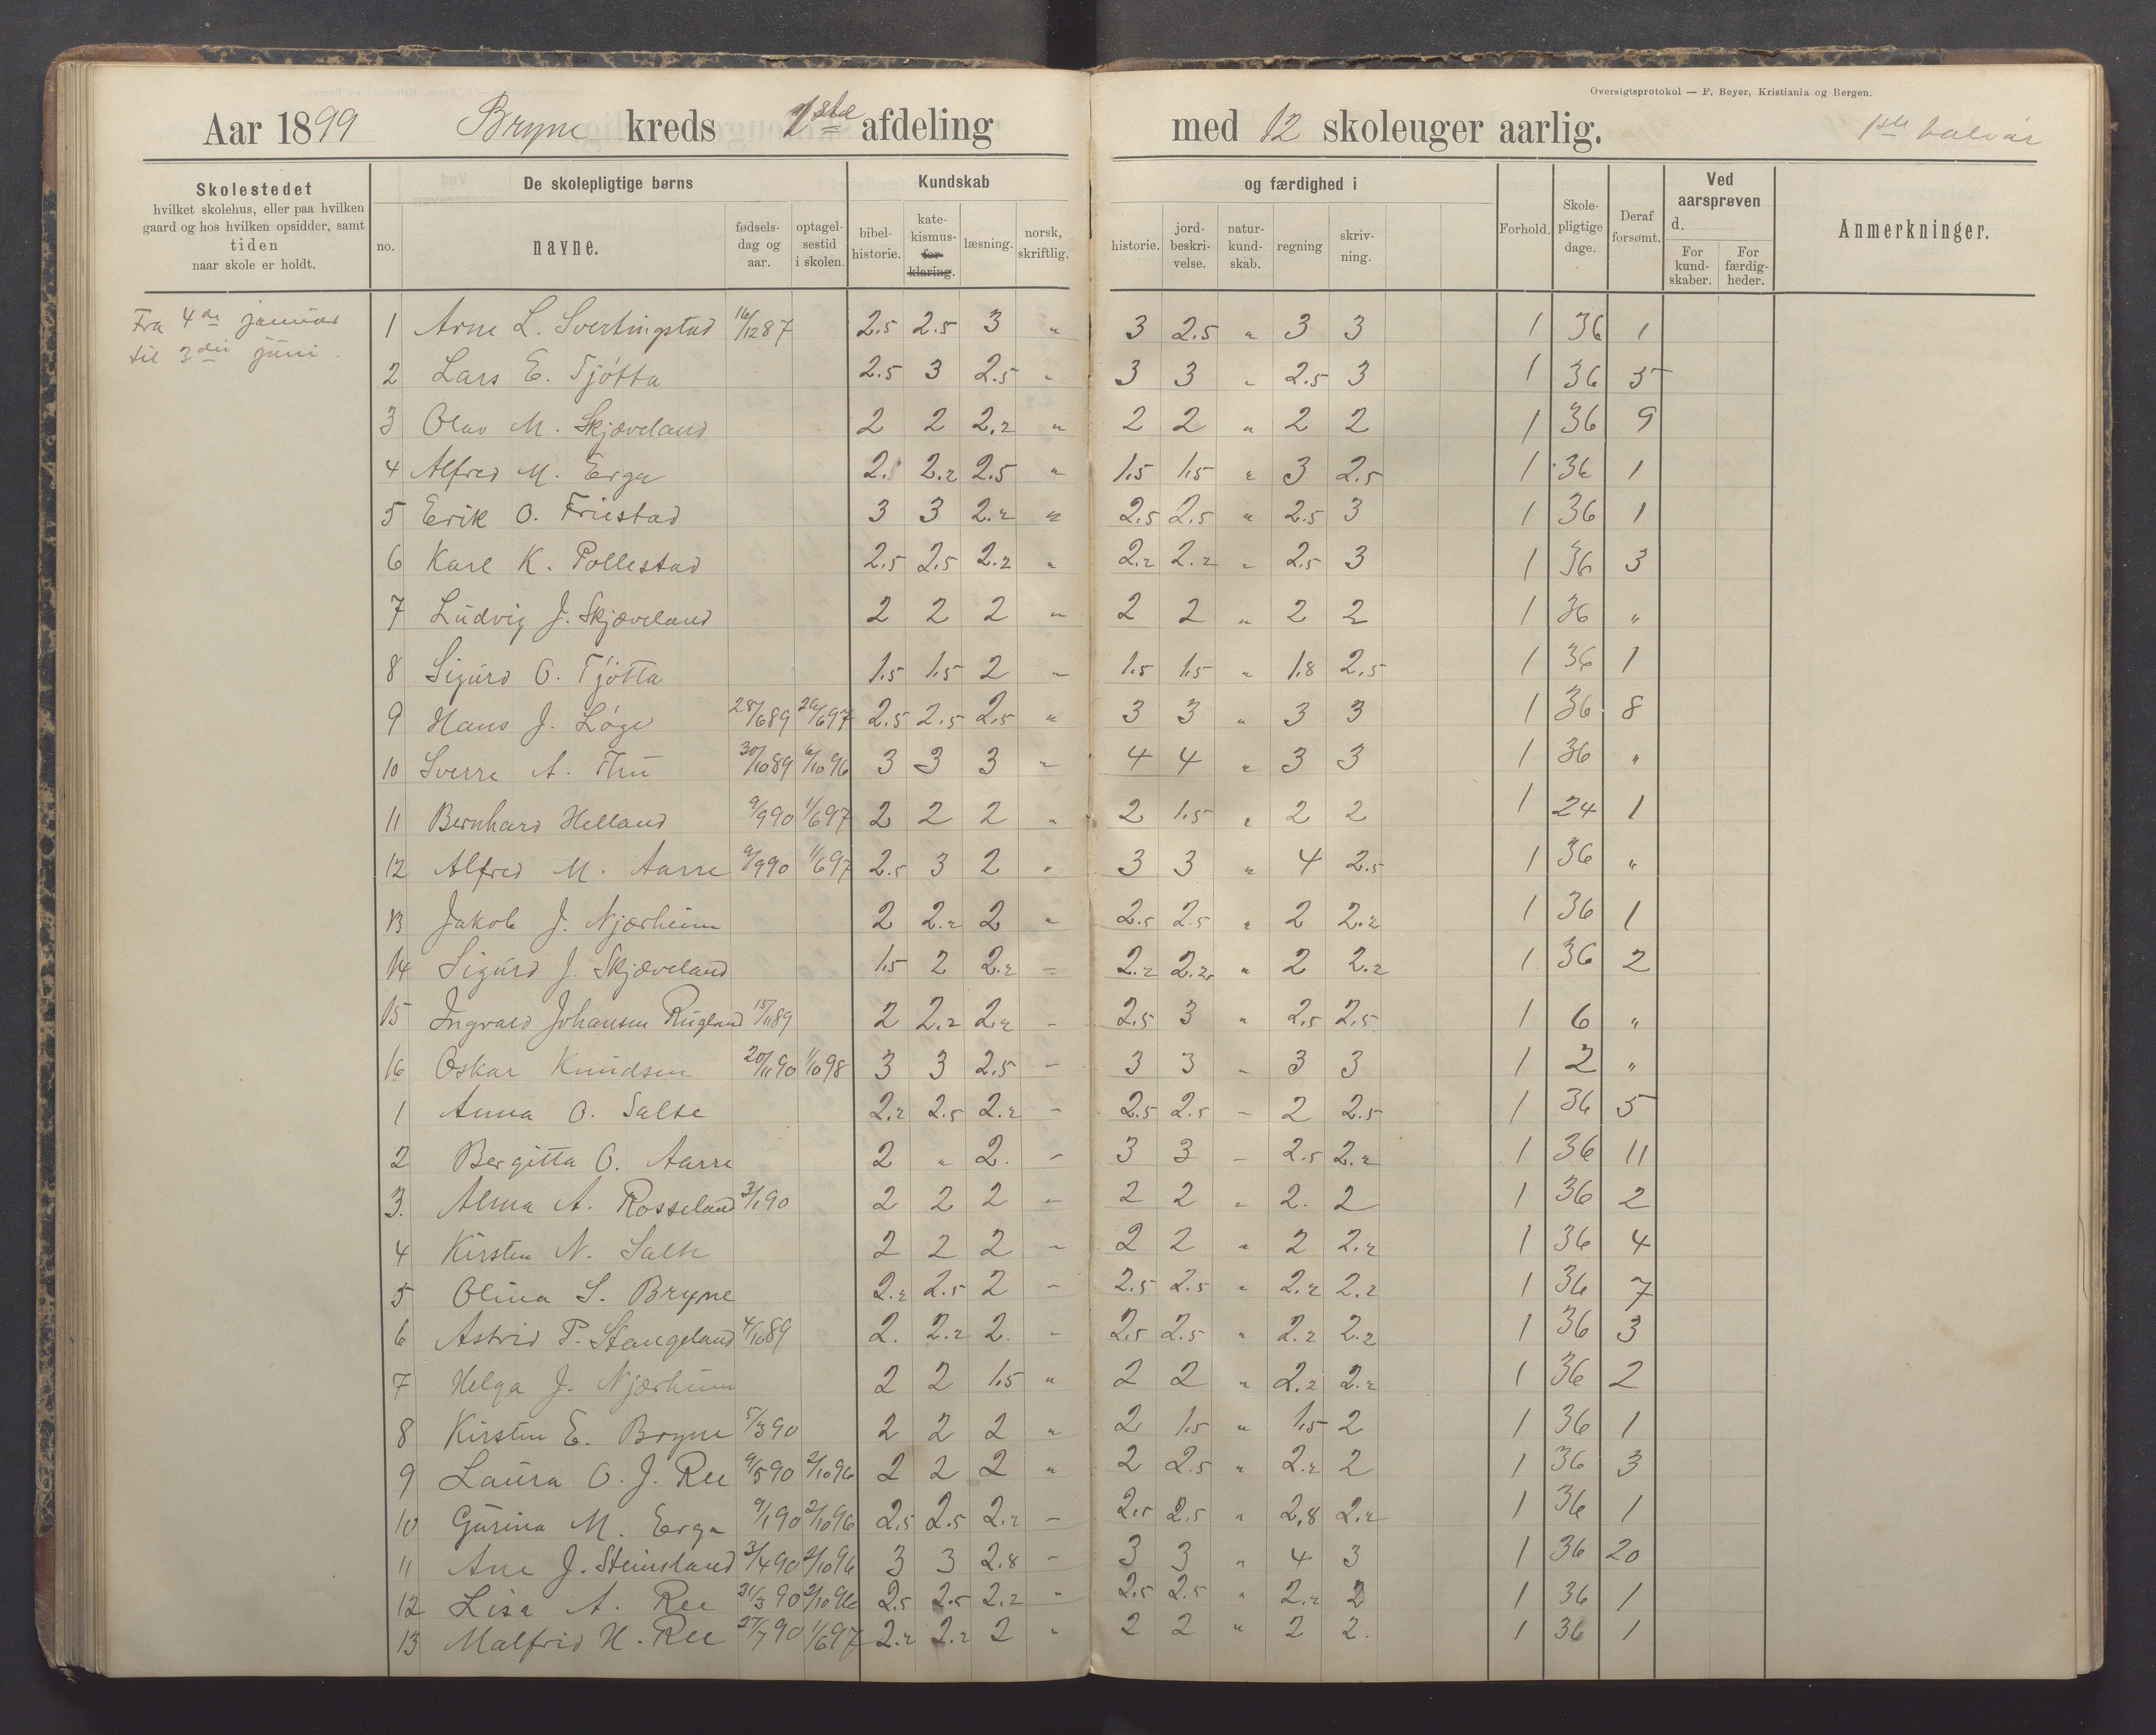 Oversigtsprotokol — F. Beyer, Kristiania og Bergen.
Aar 1899 Bryne kreds 1ste afdeling med 12 skoleuger aarlig. 1ste halvår
Skolestedet
hvilket skolehus, eller paa hvilken
gaard og hos hvilken opsidder, samt
tiden
naar skole er holdt.
De skolepligtige børns
no. navne. fødsels-dag og aar. optagel-sestid i skolen.
Kundskab og færdighed i
bibel-historie. kate-kismus-for-klaring. læsning. norsk, skriftlig. historie. jord-beskri-velse. natur-kund-skab. regning skriv-ning.
Forhold. Skole-pligtige dage. Deraf forsømt.
Ved aarsprøven d.
For kund-skaber. For færdig-heder.
Anmerkninger.
Fra 4de januar
til 3die juni.
1 Arne L. Svertingstad 16/12 87 2.5 2.5 3 " 3 2.5 " 3 3 1 36 1
2 Lars E. Tjøtta 2.5 3 2.5 " 3 3 " 2.5 3 1 36 5
3 Olav M. Skjæveland 2 2 2.2 " 2 2 " 2 2 1 36 9
4 Alfred M. Erga 2.5 2.2 2.5 " 1.5 1.5 " 3 2.5 1 36 1
5 Erik O. Friestad 3 3 2.2 " 2.5 2.5 " 2.5 3 1 36 1
6 Karl K. Pollestad 2.5 2.5 2.2 " 2.2 2.2 " 2.5 3 1 36 3
7 Ludvig J. Skjæveland 2 2 2 " 2 2 " 2 2 1 36 "
8 Sigurd O. Tjøtta 1.5 1.5 2 " 1.5 1.5 " 1.8 2.5 1 36 1
9 Hans J. Løge 28/6 89 26/6 97 2.5 2.5 2.5 " 3 3 " 3 3 1 36 8
10 Sverre A. Thu 30/10 89 6/10 96 3 3 3 " 4 4 " 3 3 1 36 "
11 Bernhard Helland 9/9 90 1/6 97 2 2 2 " 2 1.5 " 2 2 1 24 1
12 Alfred M. Aarre 9/9 90 1/6 97 2.5 3 2 " 3 3 " 4 2.5 1 36 "
13 Jakob J. Njærheim 2 2.2 2 " 2.5 2.5 " 2 2.2 1 36 1
14 Sigurd J. Skjæveland 1.5 2 2.2 " 2.2 2.2 " 2 2.2 1 36 2
15 Ingvald Johansen Rugland 15/11 89 2 2.2 2.2 " 2.5 3 " 2.5 2.5 1 6 "
16 Oskar Knudsen 20/11 90 1/10 98 3 3 2.5 " 3 3 " 3 3 1 2 "
1 Anna O. Salte 2.2 2.5 2.2 " 2.5 2.5 " 2 2.5 1 36 5
2 Bergitta O. Aarre 2 " 2. " 3 3 " 2.5 2.2 1 36 11
3. Alma A. Rosseland 3/1 90 2 2 2 " 2 2 " 2. 2 1 36 2
4 Kirsten N. Salte 2 2 2 " 2 2 " 2 2.2 1 36 4
5 Olina S. Bryne 2.2 2.5 2 " 2.5 2.5 " 2.2 2.2 1 36 7
6 Astrid P. Stangeland 4/10 89 2. 2.2 2. " 2.5 2.5 " 2.2 2.2 1 36 3
7 Helga J. Njærheim 2 2 1.5 " 2 2 " 2.2 2.2 1 36 2
8 Kirsten E. Bryne 5/3 90 2 2 2 " 2 1.5 " 1.5 2 1 36 1
9 Laura O. J. Ree 9/5 90 2/10 96 2 2 2 " 2 2.5 " 2.2 2 1 36 3
10 Gurina M. Erga 9/1 90 2/10 96 2.5 2.5 2.2 " 2.5 2.5 " 2.8 2.2 1 36 1
11 Ane J. Steinsland 3/4 90 2/10 96 3 3 2.8 " 3 3 " 4 3 1 36 20
12 Lisa A. Ree 31/3 90 2/10 96 2.5 2.5 2.2 " 2.5 2.5 " 2.2 2 1 36 1
13 Malfrid H. Ree 27/7 90 1/6 97 2.2 2.2 2 " 2 2 " 2 2. 1 36 1